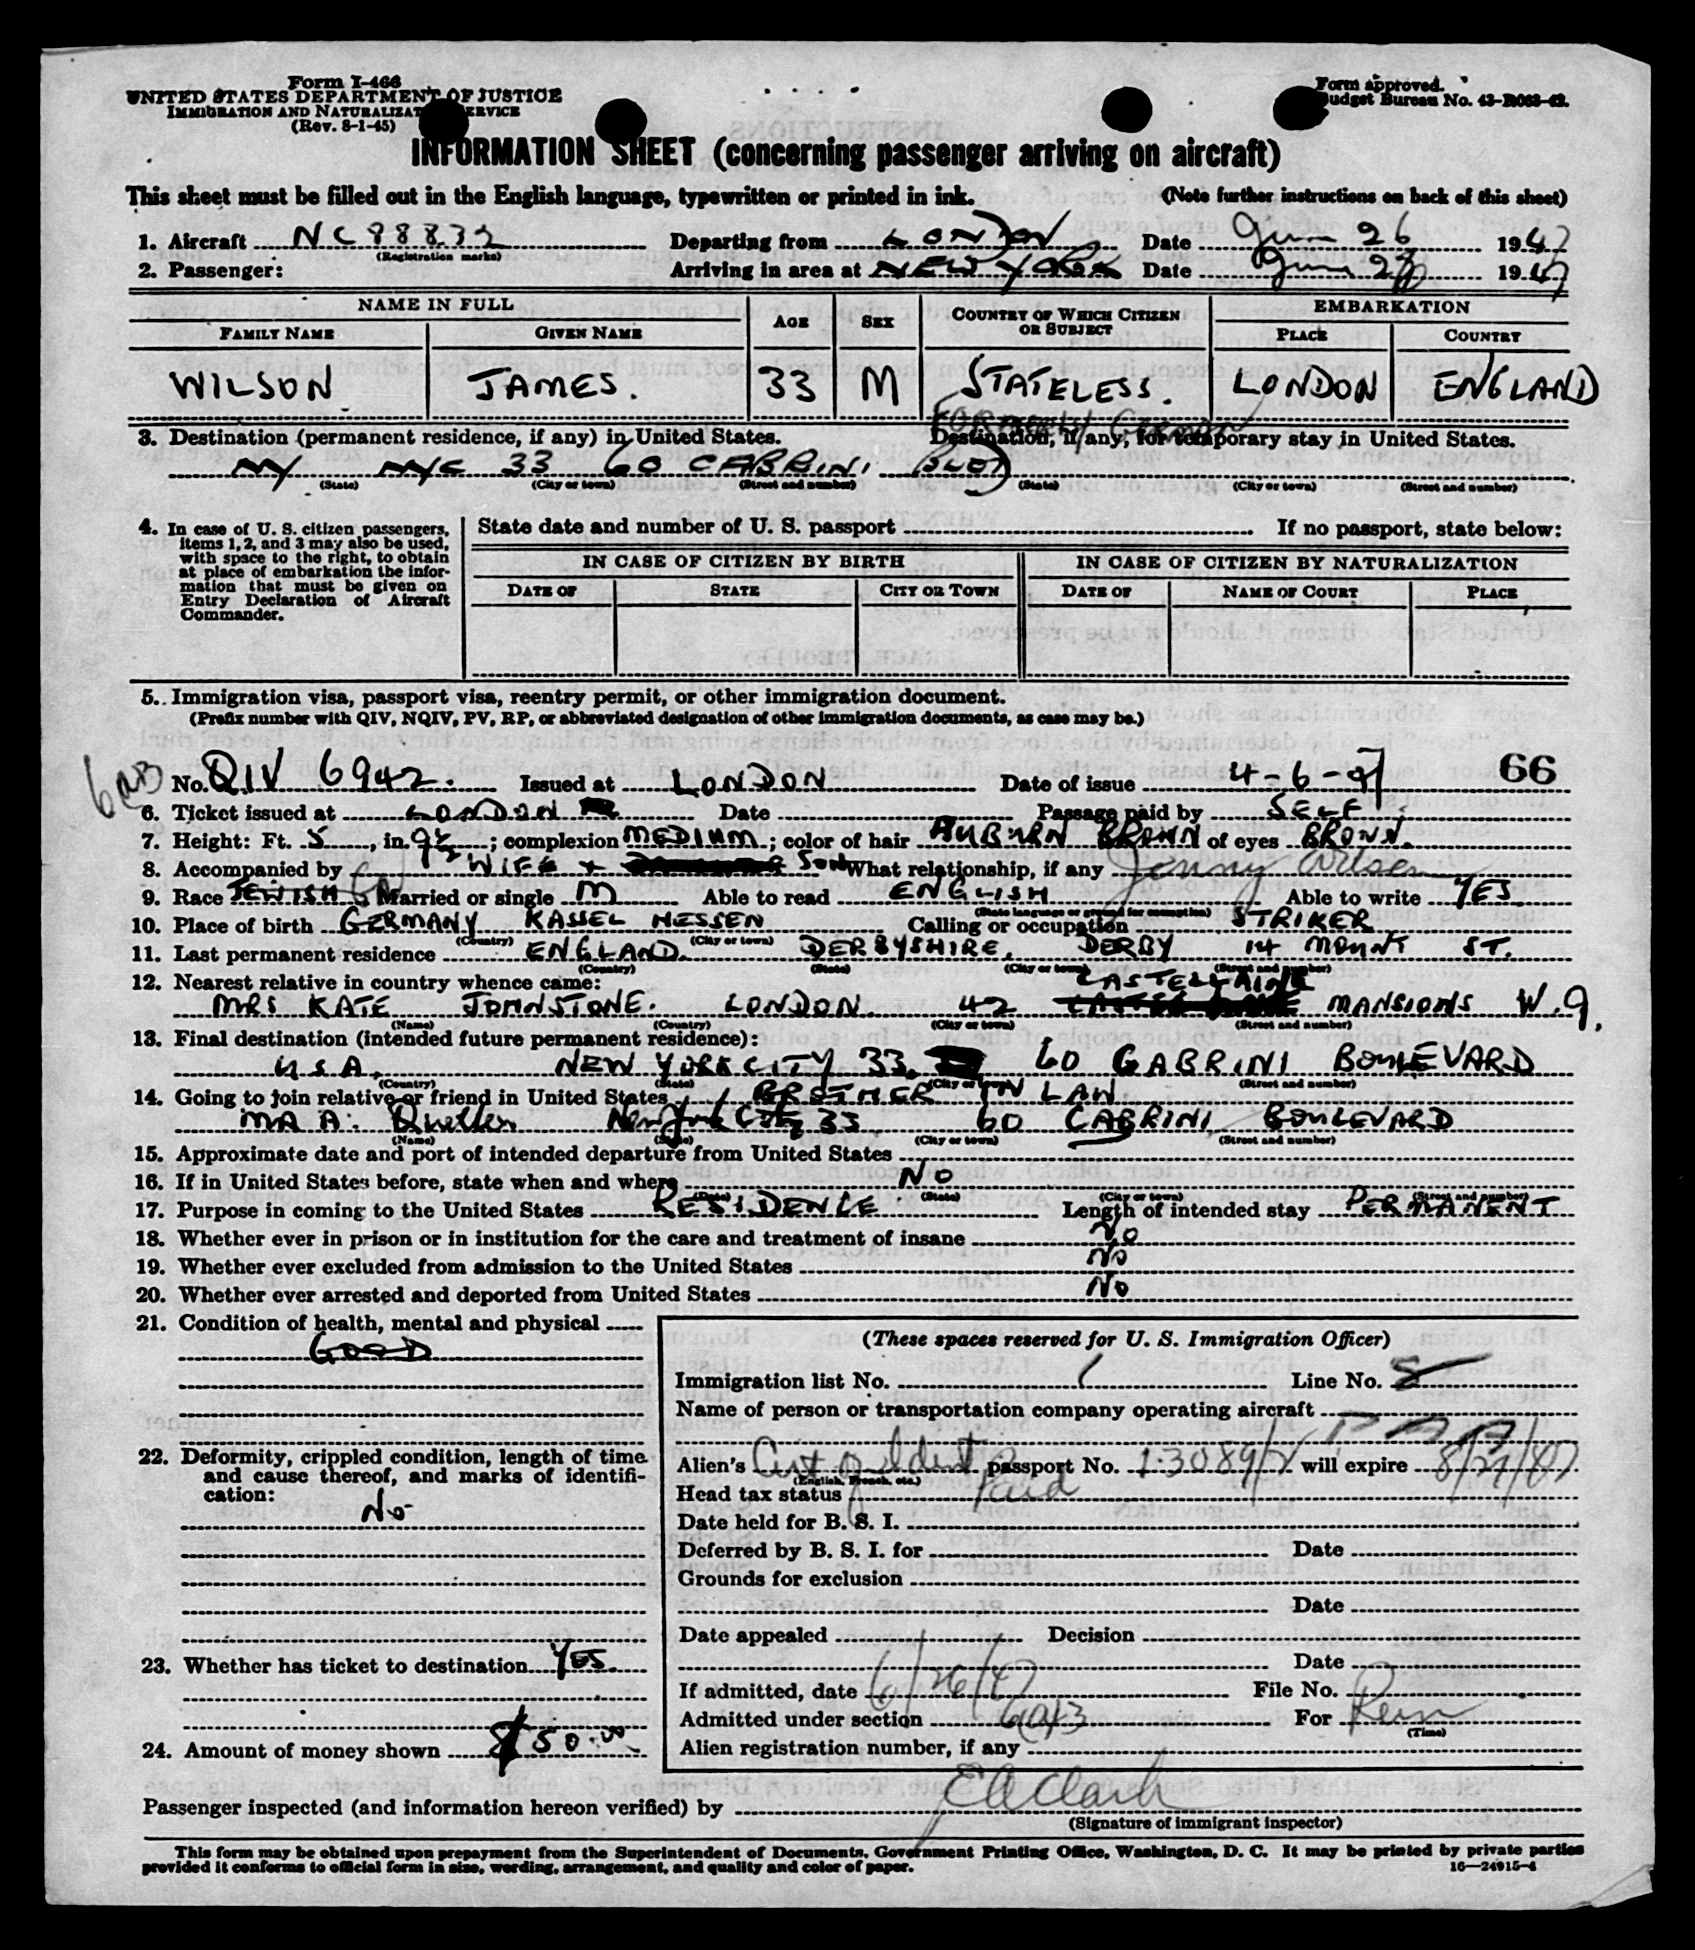 Form I-466
UNITED STATES DEPARTMENT OF JUSTICE
IMMIGRATION AND NATURALIZAT ERVICE
(Rev. 8-1-45)
Form approved.
Budget Bureau No. 43-R063-42.
INFORMATION SHEET (concerning passenger arriving on aircraft)
This sheet must be filled out in the English language, typewritten or printed in ink. (Note further instructions on back of this sheet)
1. Aircraft NC88832 Departing from LONDON Date Jun 26 1947
(Registration marks)
2. Passenger: Arriving in area at NEW YORK Date Jun 1947
NAME IN FULL AGE SEX COUNTRY OF WHICH CITIZEN OR SUBJECT EMBARKATION
FAMILY NAME GIVEN NAME PLACE COUNTRY
WILSON JAMES. 33 M STATELESS. LONDON ENGLAND
Formerly German
3. Destination (permanent residence, if any) in United States. Destination, if any, for temporary stay in United States.
NY NYC 33 60 CABRINI BLVD
(State) (City or town) (Street and number) (State) (City or town) (Street and number)
4. In case of U. S. citizen passengers, items 1, 2, and 3 may also be used, with space to the right, to obtain at place of embarkation the information that must be given on Entry Declaration of Aircraft Commander.
State date and number of U. S. passport If no passport, state below:
IN CASE OF CITIZEN BY BIRTH IN CASE OF CITIZEN BY NATURALIZATION
DATE OF STATE CITY OR TOWN DATE OF NAME OF COURT PLACE
5. Immigration visa, passport visa, reentry permit, or other immigration document.
(Prefix number with QIV, NQIV, PV, RP, or abbreviated designation of other immigration documents, as case may be.)
66
No. QIV 6942. Issued at LONDON Date of issue 4-6-47
6. Ticket issued at LONDON Date Passage paid by SELF.
7. Height: Ft. 5, in. 9½; complexion MEDIUM; color of hair AUBURN BROWN of eyes BROWN.
8. Accompanied by WIFE + SON What relationship, if any Jenny Wilson
9. Race JEWISH Married or single M Able to read ENGLISH Able to write YES.
(State language or ground for exemption)
10. Place of birth GERMANY KASSEL HESSEN Calling or occupation STRIKER
(Country) (City or town)
11. Last permanent residence ENGLAND. DERBYSHIRE. DERBY 14 MOUNT ST.
(Country) (State) (City or town) (Street and number)
12. Nearest relative in country whence came: CASTELLAINE
MRS KATE JOHNSTONE. LONDON. 42 MANSIONS W.9.
(Name) (Country) (City or town) (Street and number)
13. Final destination (intended future permanent residence):
USA. NEW YORK CITY 33. 60 GABRINI BOULEVARD
(Country) (State) (City or town) (Street and number)
14. Going to join relative or friend in United States BROTHER IN LAW
MR A. New York City 33 60 CABRINI BOULEVARD
(Name) (State) (City or town) (Street and number)
15. Approximate date and port of intended departure from United States
16. If in United States before, state when and where NO
(Date) (State) (City or town) (Street and number)
17. Purpose in coming to the United States RESIDENCE Length of intended stay PERMANENT
18. Whether ever in prison or in institution for the care and treatment of insane No
19. Whether ever excluded from admission to the United States No
20. Whether ever arrested and deported from United States No
21. Condition of health, mental and physical
GOOD
22. Deformity, crippled condition, length of time and cause thereof, and marks of identification:
No
23. Whether has ticket to destination YES.
24. Amount of money shown $50.00
(These spaces reserved for U. S. Immigration Officer)
Immigration list No. 1 Line No. 8
Name of person or transportation company operating aircraft
PAA
Alien's Cert of Ident passport No. will expire
(English, French, etc.)
Head tax status Paid
Date held for B. S. I.
Deferred by B. S. I. for Date
Grounds for exclusion
Date
Date appealed Decision
Date
If admitted, date 6/26/47 File No.
Admitted under section 6a3 For Perm
(Time)
Alien registration number, if any
Passenger inspected (and information hereon verified) by EA Clark
(Signature of immigrant inspector)
This form may be obtained upon prepayment from the Superintendent of Documents, Government Printing Office, Washington, D. C. It may be printed by private parties
provided it conforms to official form in size, wording, arrangement, and quality and color of paper. 16—24915-4